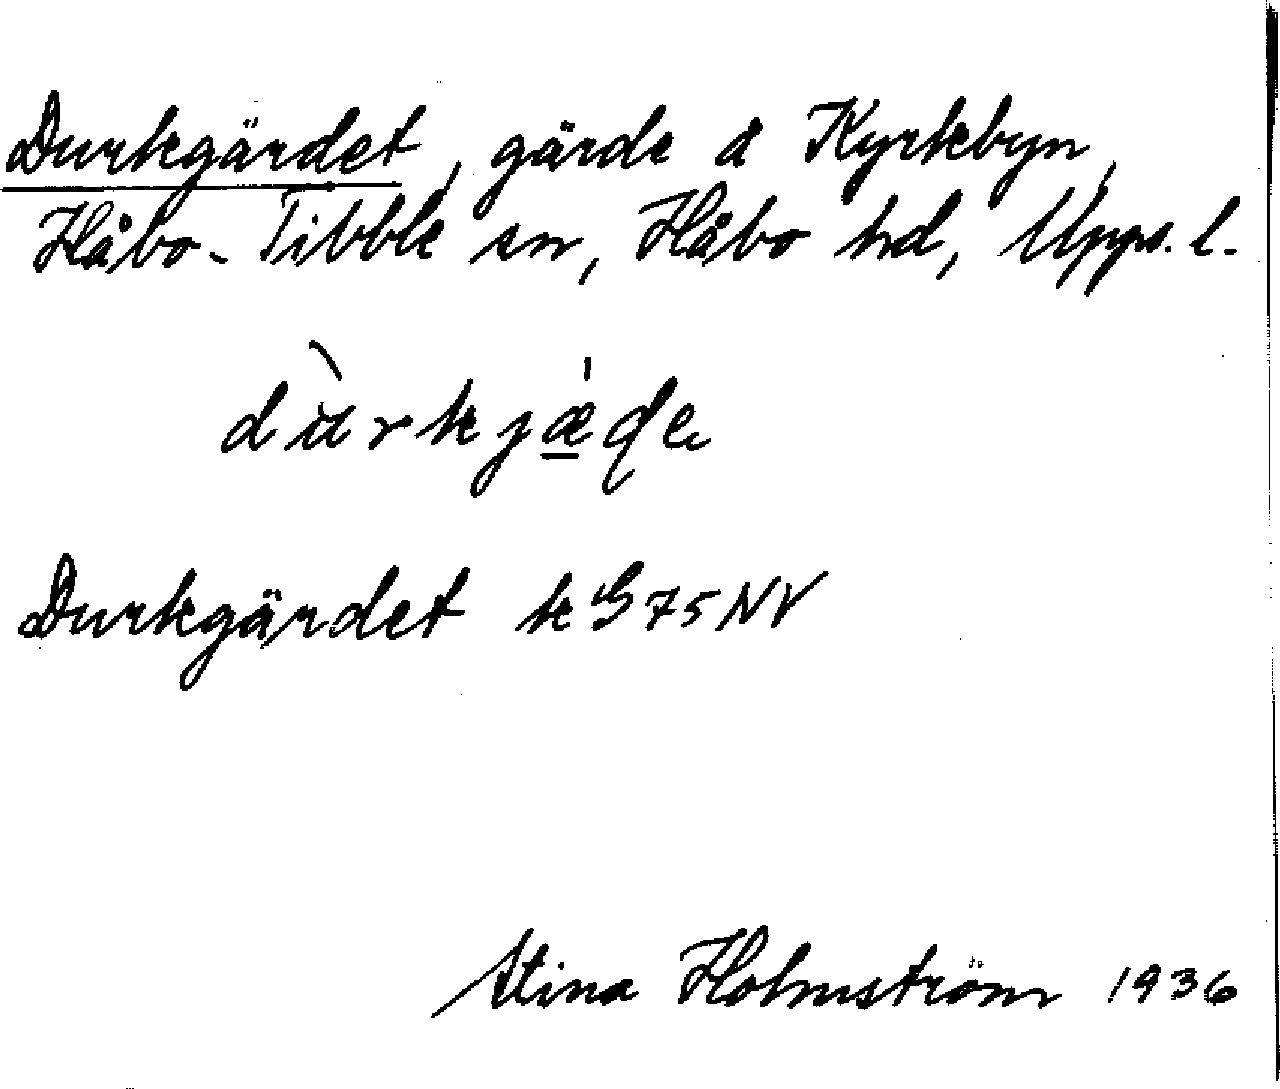 Durkgärdet, gärde å Kyrkbyn,
Håbo-Tibble sn, Håbo hd, Upps. l.
dùrkjæ̀ɖe
Durkgärdet k G 75 NV
Stina Holmström 1936